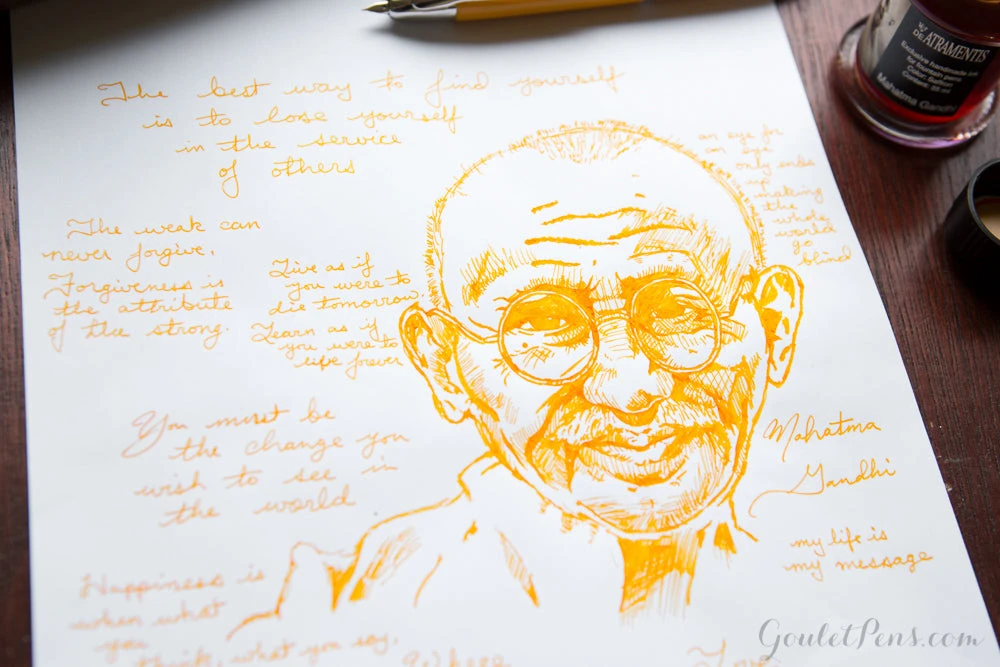 The best way to find yourself
is to lose yourself
in the service
of others
The weak can
never forgive.
Forgiveness is
the attribute
of the strong.
Live as if
you were to
die tomorrow.
Learn as if
you were to
life forever
an eye for
an eye
only ends
up
making
the
whole
world
go
blind
You must be
the change you
wish to see in
the world
Mahatma
Gandhi
my life is
my message
Happiness is
when what
you
think, what you say,
Where
DE ATRAMENTIS
Exclusive handmade ink
for fountain pens
Color: Saffron
Content: 35 ml
Mahatma Gandhi
GouletPens.com